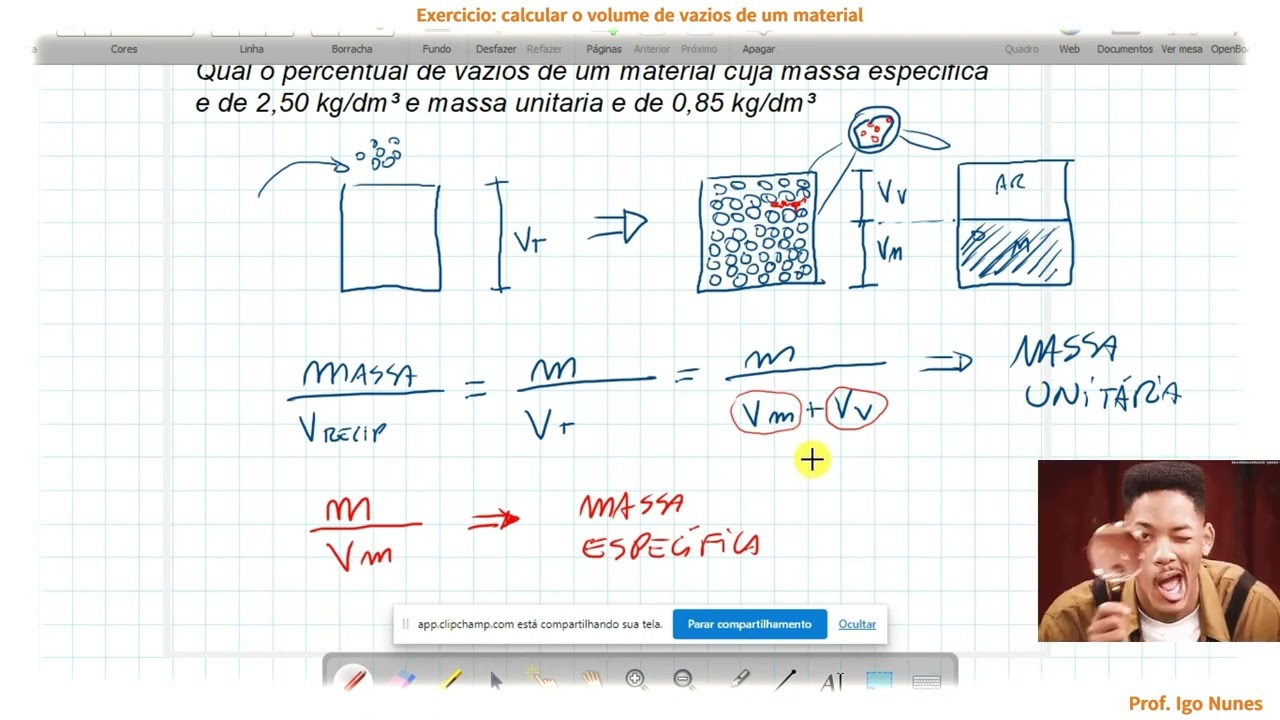 Exercicio: calcular o volume de vazios de um material
Cores Linha Borracha Fundo Desfazer Refazer Páginas Anterior Próximo Apagar Quadro Web Documentos Ver mesa OpenBo
Qual o percentual de vazios de um material cuja massa especifica
e de 2,50 kg/dm³ e massa unitaria e de 0,85 kg/dm³
VT
VV
Vm
AR
M
MASSA
VRECIP
=
m
VT
=
m
Vm + VV
MASSA
UNITÁRIA
m
Vm
MASSA
ESPECÍFICA
app.clipchamp.com está compartilhando sua tela.
Parar compartilhamento
Ocultar
Prof. Igo Nunes